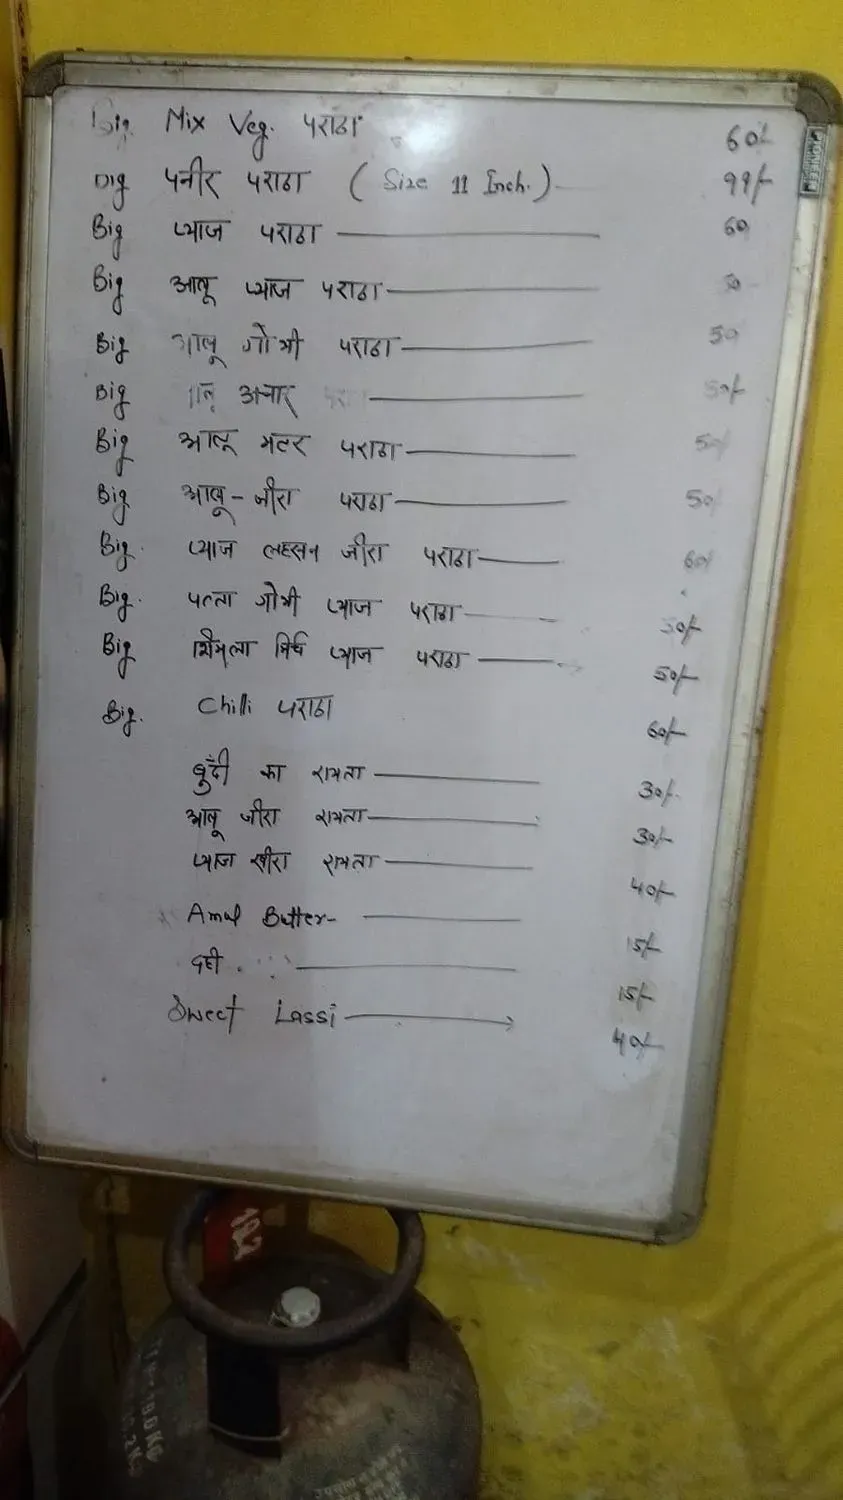 Big Mix Veg. पराठा 60/-
Big पनीर पराठा ( Size 11 Inch. ) 99/-
Big प्याज पराठा 60
Big आलू प्याज पराठा 50
Big आलू गोभी पराठा 50
Big आलू अचार परा 50/-
Big आलू मटर पराठा 50/
Big आलू - जीरा पराठा 50/
Big. प्याज लहसन जीरा पराठा 60/
Big. पत्ता गोभी प्याज पराठा 50/-
Big शिमला मिर्च प्याज पराठा 50/-
Big. Chilli पराठा 60/-
बुँदी का रायता 30/-
आलू जीरा रायता 30/-
प्याज खीरा रायता 40/-
Amul Butter- 15/-
दही 15/-
Sweet Lassi 40/-
192